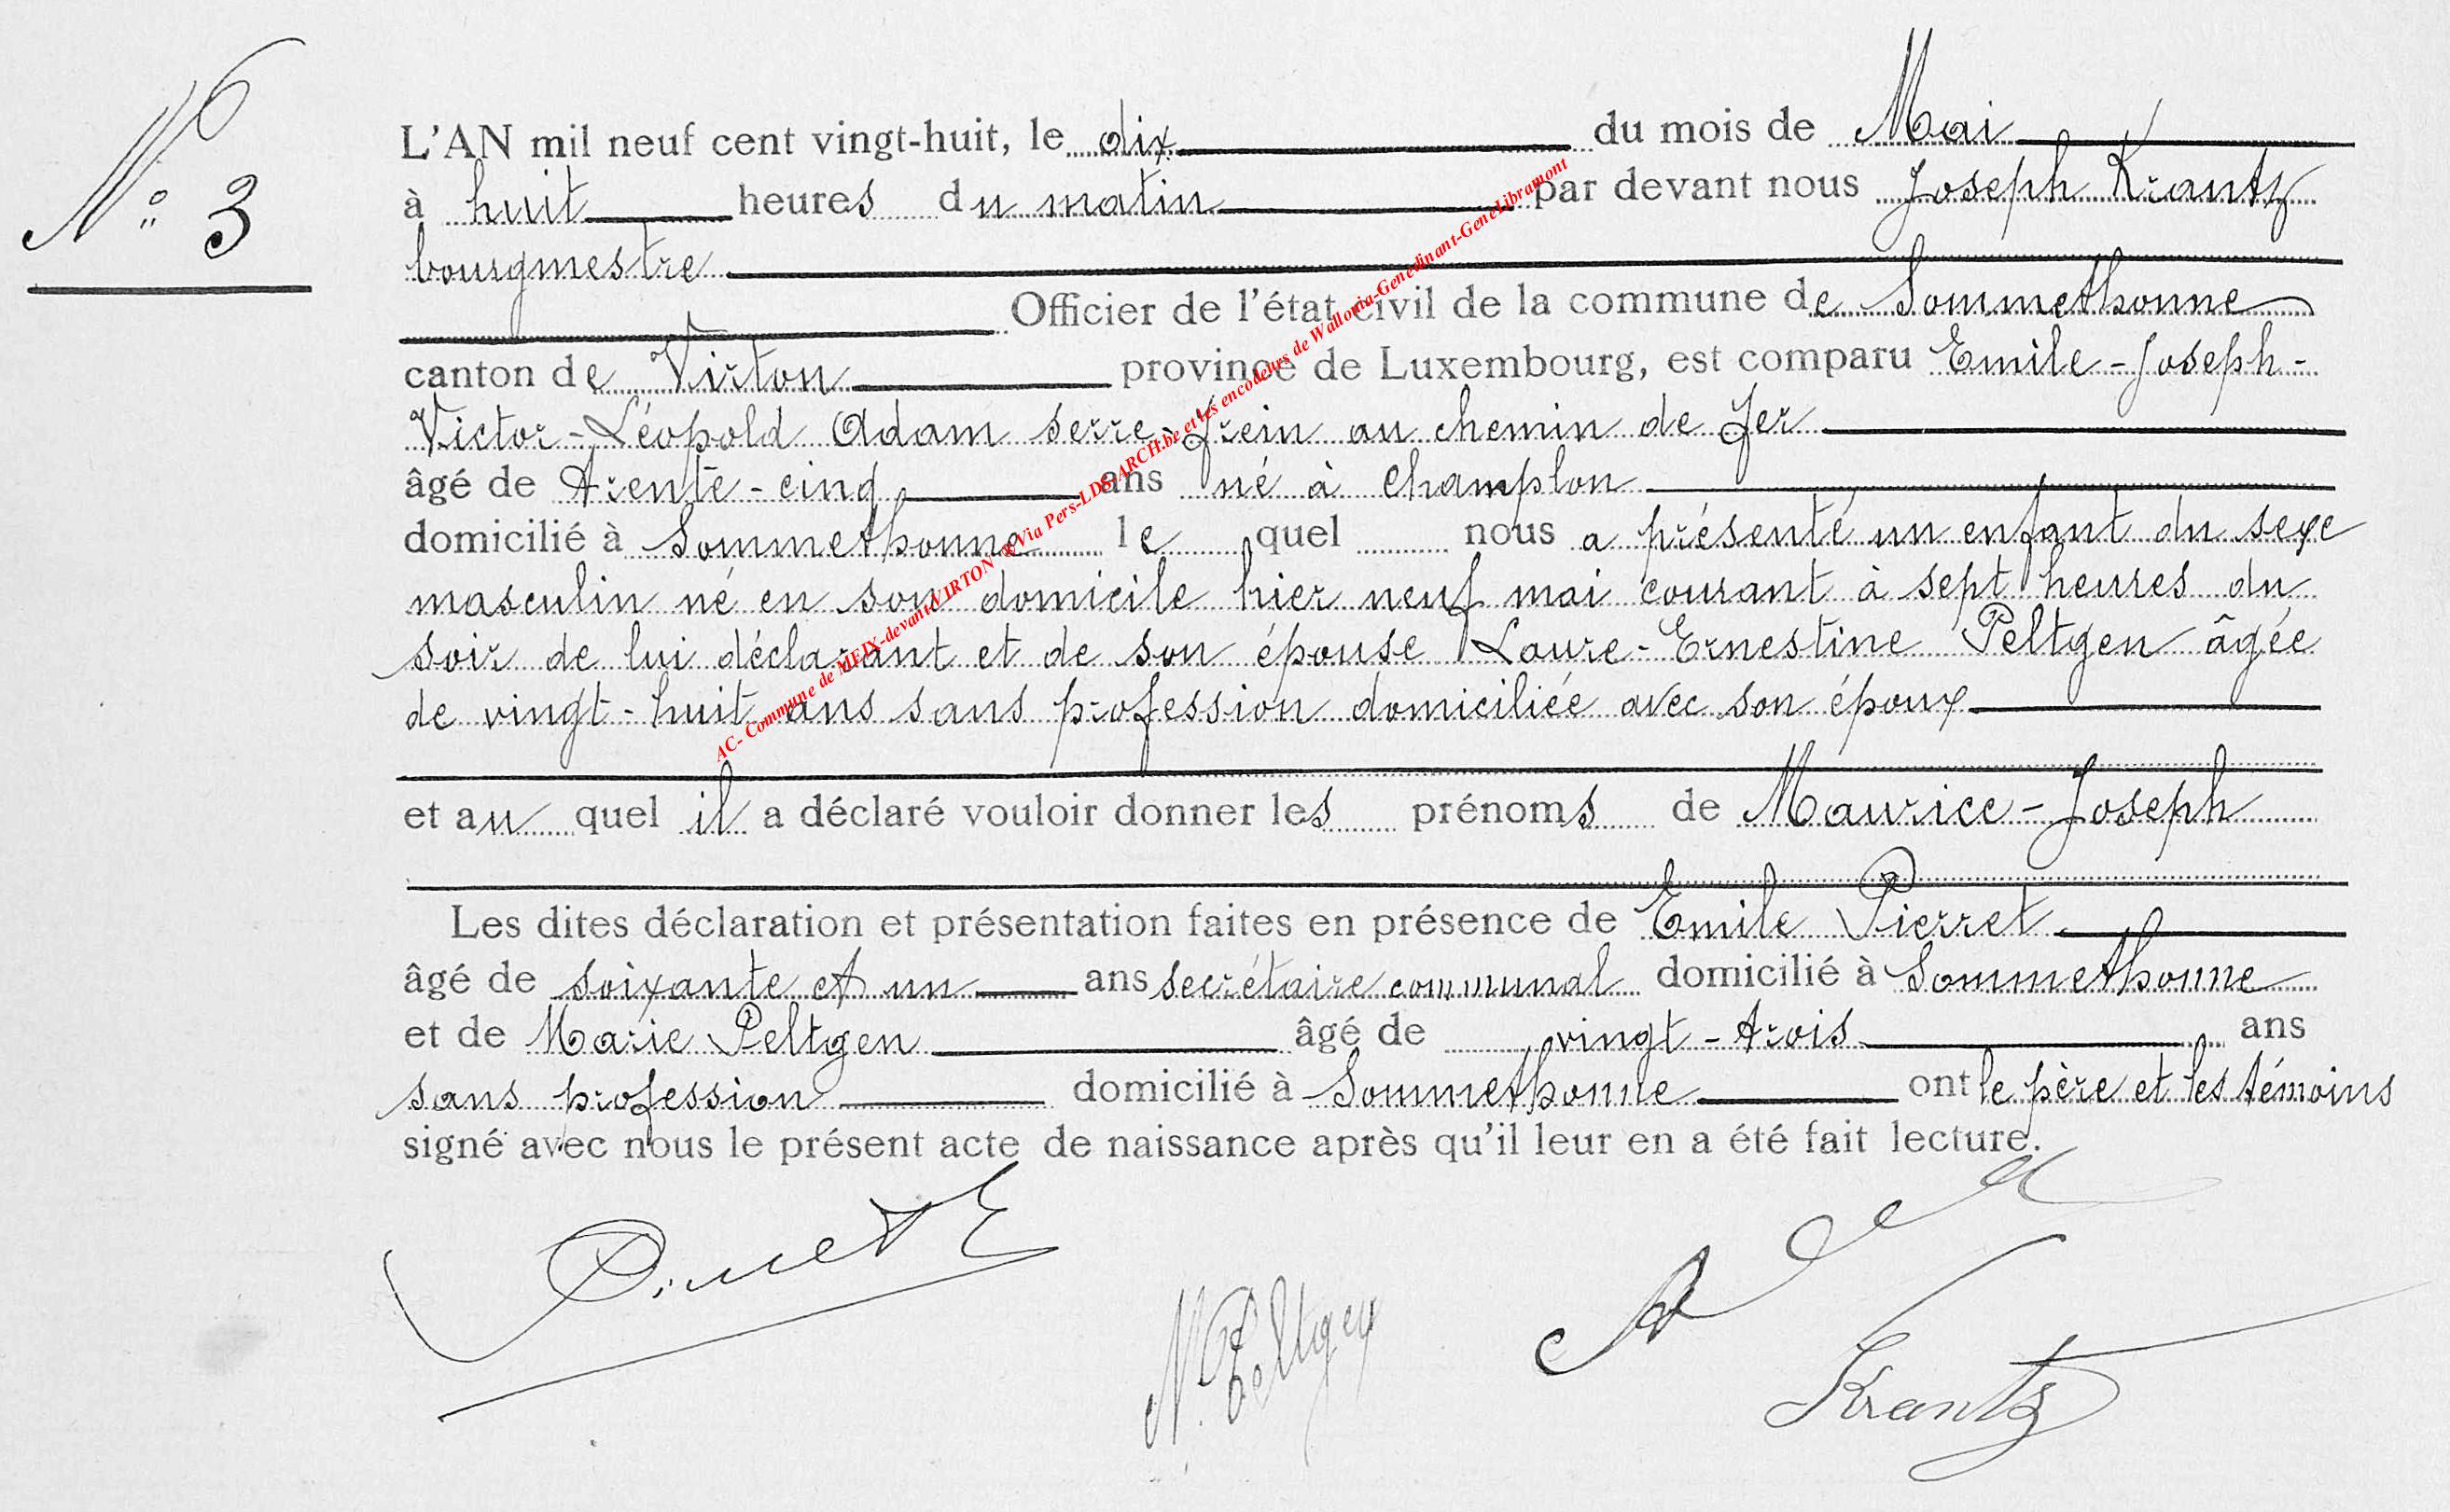 N° 3
L'AN mil neuf cent vingt-huit, le dix du mois de Mai
à huit heures du matin par devant nous Joseph Krantz
bourgmestre
Officier de l'état civil de la commune de Sommethonne
canton de Virton province de Luxembourg, est comparu Emile-Joseph-
Victor-Léopold Adam serre-frein au chemin de fer
âgé de trente-cinq ans né à Champlon
domicilié à Sommethonne le quel nous a présenté un enfant du sexe
masculin né en son domicile hier neuf mai courant à sept heures du
soir de lui déclarant et de son épouse Laure-Ernestine Peltgen âgée
de vingt-huit ans sans profession domiciliée avec son époux
et au quel il a déclaré vouloir donner les prénoms de Maurice-Joseph
Les dites déclaration et présentation faites en présence de Emile Pierret
âgé de soixante et un ans secrétaire communal domicilié à Sommethonne
et de Marie Peltgen âgé de vingt-trois ans
sans profession domicilié à Sommethonne ont le père et les témoins
signé avec nous le présent acte de naissance après qu'il leur en a été fait lecture.
M. Peltgen
Krantz
AC- Commune de MEIX-devant-VIRTON Via Pers-LDS-ARCH.be et les encodeurs de Wallonia-Genedinant-GeneLibramont